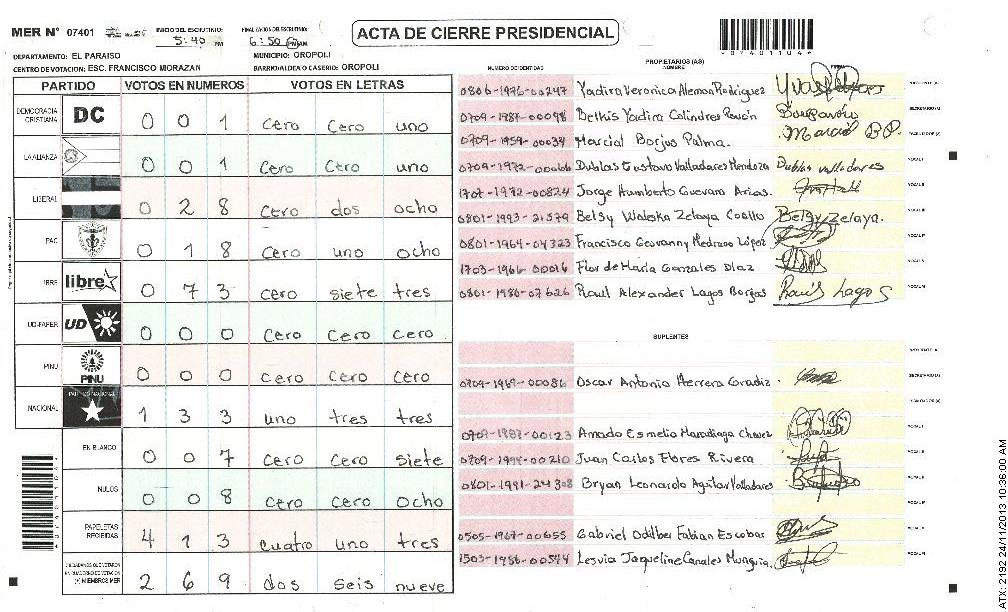 MER N° 07401
INICIO DEL ESCRUTINIO: 5:40 PM
FINALIZACION DEL ESCRUTINIO: 6:50 PM
ACTA DE CIERRE PRESIDENCIAL
07401104
DEPARTAMENTO: EL PARAISO
MUNICIPIO: OROPOLI
CENTRO DE VOTACION: ESC. FRANCISCO MORAZAN
BARRIO/ALDEA O CASERIO: OROPOLI
PARTIDO VOTOS EN NUMEROS VOTOS EN LETRAS
DEMOCRACIA CRISTIANA DC 0 0 1 cero cero uno
LA ALIANZA 0 0 1 cero cero uno
LIBERAL 0 2 8 cero dos ocho
PAC 0 1 8 cero uno ocho
LIBRE libre 0 7 3 cero siete tres
UD-FAPER UD 0 0 0 cero cero cero
PINU PINU 0 0 0 cero cero cero
NACIONAL 1 3 3 uno tres tres
EN BLANCO 0 0 7 cero cero siete
NULOS 0 0 8 cero cero ocho
PAPELETAS RECIBIDAS 4 1 3 cuatro uno tres
CIUDADANOS QUE VOTARON EN CUADERNO DE VOTACION (+) MIEMBROS MER 2 6 9 dos seis nueve
PROPIETARIOS (AS)
NUMERO DE IDENTIDAD NOMBRE FIRMA
0806-1976-00247 Yadira Veronica Aleman Rodriguez
0709-1987-00098 Belkis Yadira Colindres Pavón
0709-1959-00034 Marcial Borjas Palma. Marcial B P.
0709-1972-00066 Dublas Gustavo Valladares Mendoza Dublas Valladares
1707-1972-00824 Jorge Humberto Guevara Arias.
0801-1993-21579 Belsy Waleska Zelaya Coello Belsy Zelaya.
0801-1964-04323 Francisco Geovanny Medrano López
1703-1966-00016 Flor de María Gonzales Diaz
0801-1980-07626 Raul Alexander Lagos Borjas Raúl Lagos
SUPLENTES
0709-1969-00086 Oscar Antonio Herrera
0709-1987-00123 Amado Esmelio Maradiaga Chavez
0709-1994-00210 Juan Carlos Flores Rivera
0801-1991-24308 Bryan Leonardo Aguilar Valladares
0505-1967-00655 Gabriel Fabian Escobar
1503-1986-00544 Lesvia Jaqueline Canales Munguia.
ATX: 2192 24/11/2013 10:36:00 AM